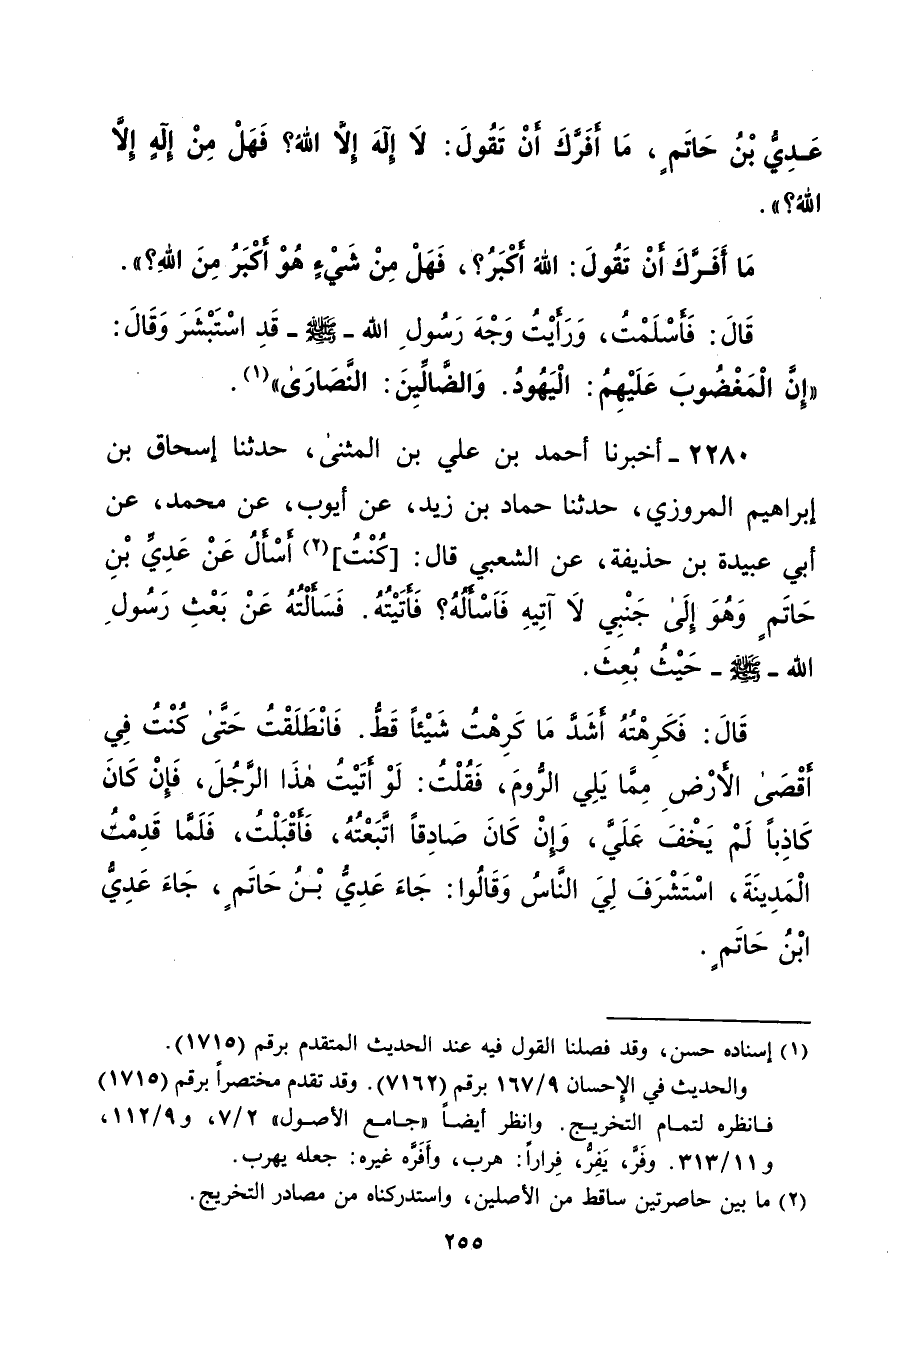 عَـدِيُّ بْنُ حَاتَمٍ، مَا أَفَرَّكَ أَنْ تَقُولَ: لَا إِلٰهَ إِلَّا اللهُ؟ فَهَلْ مِنْ إِلٰهٍ إِلَّا
اللهُ؟».
مَا أَفَـرَّكَ أَنْ تَقُولَ: اللهُ أَكْبَرُ؟، فَهَلْ مِنْ شَيْءٍ هُوْ أَكْبَرُ مِنَ اللهِ؟».
قَالَ: فَأَسْلَمْتُ، وَرَأَيْتُ وَجْهَ رَسُولِ الله ـ ﷺ ـ قَدِ اسْتَبْشَرَ وَقَالَ:
«إِنَّ الْمَغْضُوبَ عَلَيْهِمُ: الْيَهُودُ. وَالضَّالِّينَ: النَّصَارَىٰ»(١).
٢٢٨٠ ـ أخبرنا أحمد بن علي بن المثنىٰ، حدثنا إسحاق بن
إبراهيم المروزي، حدثنا حماد بن زيد، عن أيوب، عن محمد، عن
أبي عبيدة بن حذيفة، عن الشعبي قال: [كُنْتُ](٢) أَسْأَلُ عَنْ عَدِيِّ بْنِ
حَاتَمٍ وَهُوَ إِلَىٰ جَنْبِي لَا آتِيهِ فَاَسْأَلُهُ؟ فَأَتَيْتُهُ. فَسَأَلْتُهُ عَنْ بَعْثِ رَسُولِ
الله ـ ﷺ ـ حَيْثُ بُعِثَ.
قَالَ: فَكَرِهْتُهُ أَشَدَّ مَا كَرِهْتُ شَيْئاً قَطُّ. فَانْطَلَقْتُ حَتَّىٰ كُنْتُ فِي
أَقْصَىٰ الأَرْضِ مِمَّا يَلِي الرُّومَ، فَقُلْتُ: لَوْ أَتَيْتُ هٰذَا الرَّجُلَ، فَإِنْ كَانَ
كَاذِباً لَمْ يَخْفَ عَلَيَّ، وَإِنْ كَانَ صَادِقاً اتَّبَعْتُهُ، فَأَقْبَلْتُ، فَلَمَّا قَدِمْتُ
الْمَدِينَةَ، اسْتَشْرَفَ لِيَ النَّاسُ وَقَالُوا: جَاءَ عَدِيُّ بْنُ حَاتَمٍ، جَاءَ عَدِيُّ
ابْنُ حَاتَمٍ.
(١) إسناده حسن، وقد فصلنا القول فيه عند الحديث المتقدم برقم (١٧١٥).
والحديث في الإحسان ١٦٧/٩ برقم (٧١٦٢). وقد تقدم مختصراً برقم (١٧١٥)
فـانظره لتمـام التخريـج. وانظر أيضـاً «جـامـع الأصـول» ٧/٢، و١١٢/٩،
و ٣١٣/١١. وفَرَّ، يَفِرُّ، فِراراً: هرب، وأَفَرَّه غيره: جعله يهرب.
(٢) ما بين حاصرتين ساقط من الأصلين، واستدركناه من مصادر التخريج.
٢٥٥